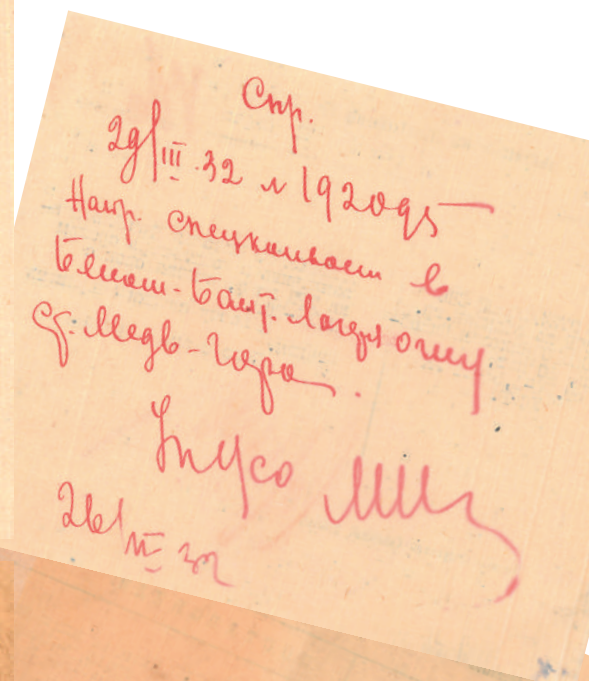 Спр.
29/III 32 № 192095
Напр. спецконвоем в
Беломор-Балт. Лагерь ОГПУ
ст. Медв-Гора.
26/IV 32